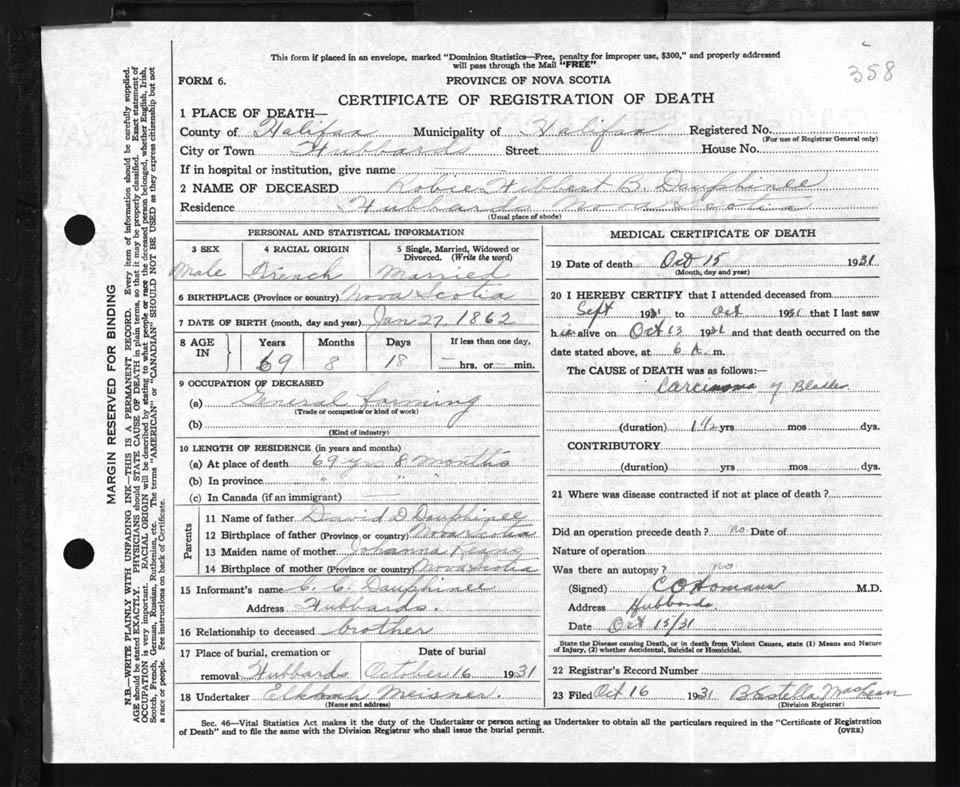 358
This form if placed in an envelope, marked "Dominion Statistics—Free, penalty for improper use, $300," and properly addressed
will pass through the Mail "FREE"
FORM 6.
PROVINCE OF NOVA SCOTIA
CERTIFICATE OF REGISTRATION OF DEATH
1 PLACE OF DEATH—
County of Halifax Municipality of Halifax Registered No.
(For use of Registrar General only)
City or Town Hubbards Street House No.
If in hospital or institution, give name
2 NAME OF DECEASED Robie Hibbert B. Dauphinee
Residence Hubbards Nova Scotia
(Usual place of abode)
PERSONAL AND STATISTICAL INFORMATION
3 SEX 4 RACIAL ORIGIN 5 Single, Married, Widowed or Divorced. (Write the word)
Male French Married
6 BIRTHPLACE (Province or country) Nova Scotia
7 DATE OF BIRTH (month, day and year) Jan 27 1862
8 AGE IN Years Months Days If less than one day,
69 8 18 hrs. or min.
9 OCCUPATION OF DECEASED
(a) General farming
(Trade or occupation or kind of work)
(b)
(Kind of industry)
10 LENGTH OF RESIDENCE (in years and months)
(a) At place of death 69 yrs 8 months
(b) In province " "
(c) In Canada (if an immigrant)
Parents
11 Name of father David D Dauphinee
12 Birthplace of father (Province or country) Nova Scotia
13 Maiden name of mother Johanna
14 Birthplace of mother (Province or country) Nova Scotia
15 Informant's name C. C. Dauphinee
Address Hubbards.
16 Relationship to deceased brother
17 Place of burial, cremation or Date of burial
removal Hubbards October 16 1931
18 Undertaker Elkanah Meisner.
(Name and address)
MEDICAL CERTIFICATE OF DEATH
19 Date of death Oct 15 1931
(Month, day and year)
20 I HEREBY CERTIFY that I attended deceased from
Sept 1931 to Oct 1931 that I last saw
h im alive on Oct 13 1931 and that death occurred on the
date stated above, at 6 A m.
The CAUSE of DEATH was as follows:—
Carcinoma of Bladder
(duration) 1 1/2 yrs mos dys.
CONTRIBUTORY
(duration) yrs mos dys.
21 Where was disease contracted if not at place of death?
Did an operation precede death? no Date of
Nature of operation
Was there an autopsy? no
(Signed) M.D.
Address Hubbards
Date Oct 15/31
State the Disease causing Death, or in death from Violent Causes, state (1) Means and Nature
of Injury, (2) whether Accidental, Suicidal or Homicidal.
22 Registrar's Record Number
23 Filed Oct 16 1931 Estella MacLean
(Division Registrar)
Sec. 46—Vital Statistics Act makes it the duty of the Undertaker or person acting as Undertaker to obtain all the particulars required in the "Certificate of Registration
of Death" and to file the same with the Division Registrar who shall issue the burial permit.
(OVER)
MARGIN RESERVED FOR BINDING
N.B.—WRITE PLAINLY WITH UNFADING INK—THIS IS A PERMANENT RECORD. Every item of information should be carefully supplied.
AGE should be stated EXACTLY. PHYSICIANS should STATE CAUSE OF DEATH in plain terms, so that it may be properly classified. Exact statement of
OCCUPATION is very important. RACIAL ORIGIN will be described by stating to what people or race the deceased person belonged, whether English, Irish,
Scotch, French, German, Russian, Ruthenian, etc. The terms "AMERICAN" or "CANADIAN" SHOULD NOT BE USED as they express citizenship but not
a race or people. See instructions on back of Certificate.